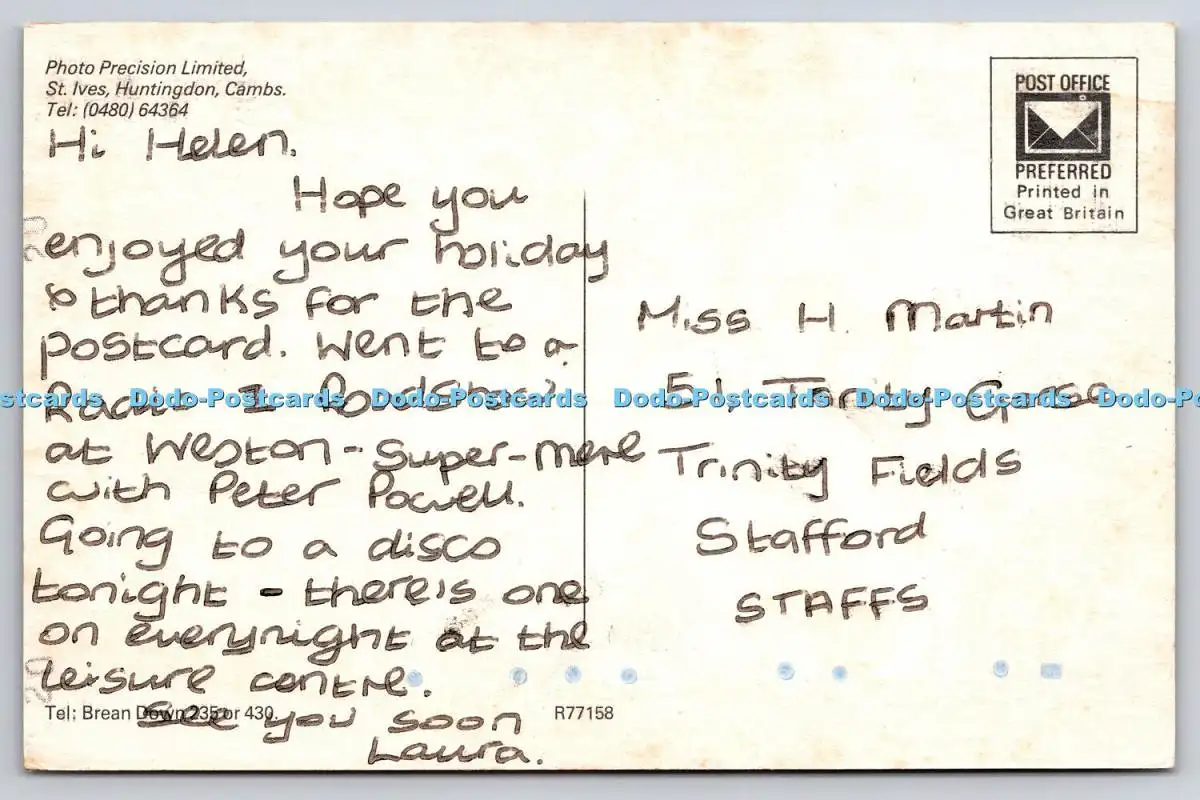 Photo Precision Limited,
St. Ives, Huntingdon, Cambs.
Tel: (0480) 64364
POST OFFICE
PREFERRED
Printed in
Great Britain
Hi Helen.
Hope you
enjoyed your holiday
& thanks for the
postcard. Went to a
Radio 1 Roadshow
at Weston-Super-Mare
with Peter Powell.
Going to a disco
tonight - there's one
on everynight at the
leisure centre.
See you soon
Laura.
Miss H. Martin
51, Trinity
Trinity Fields
Stafford
STAFFS
Tel: Brean Down 235 or 430.
R77158
stcards Dodo-Postcards Dodo-Postcards Dodo-Postcards Dodo-Postcards Dodo-Po